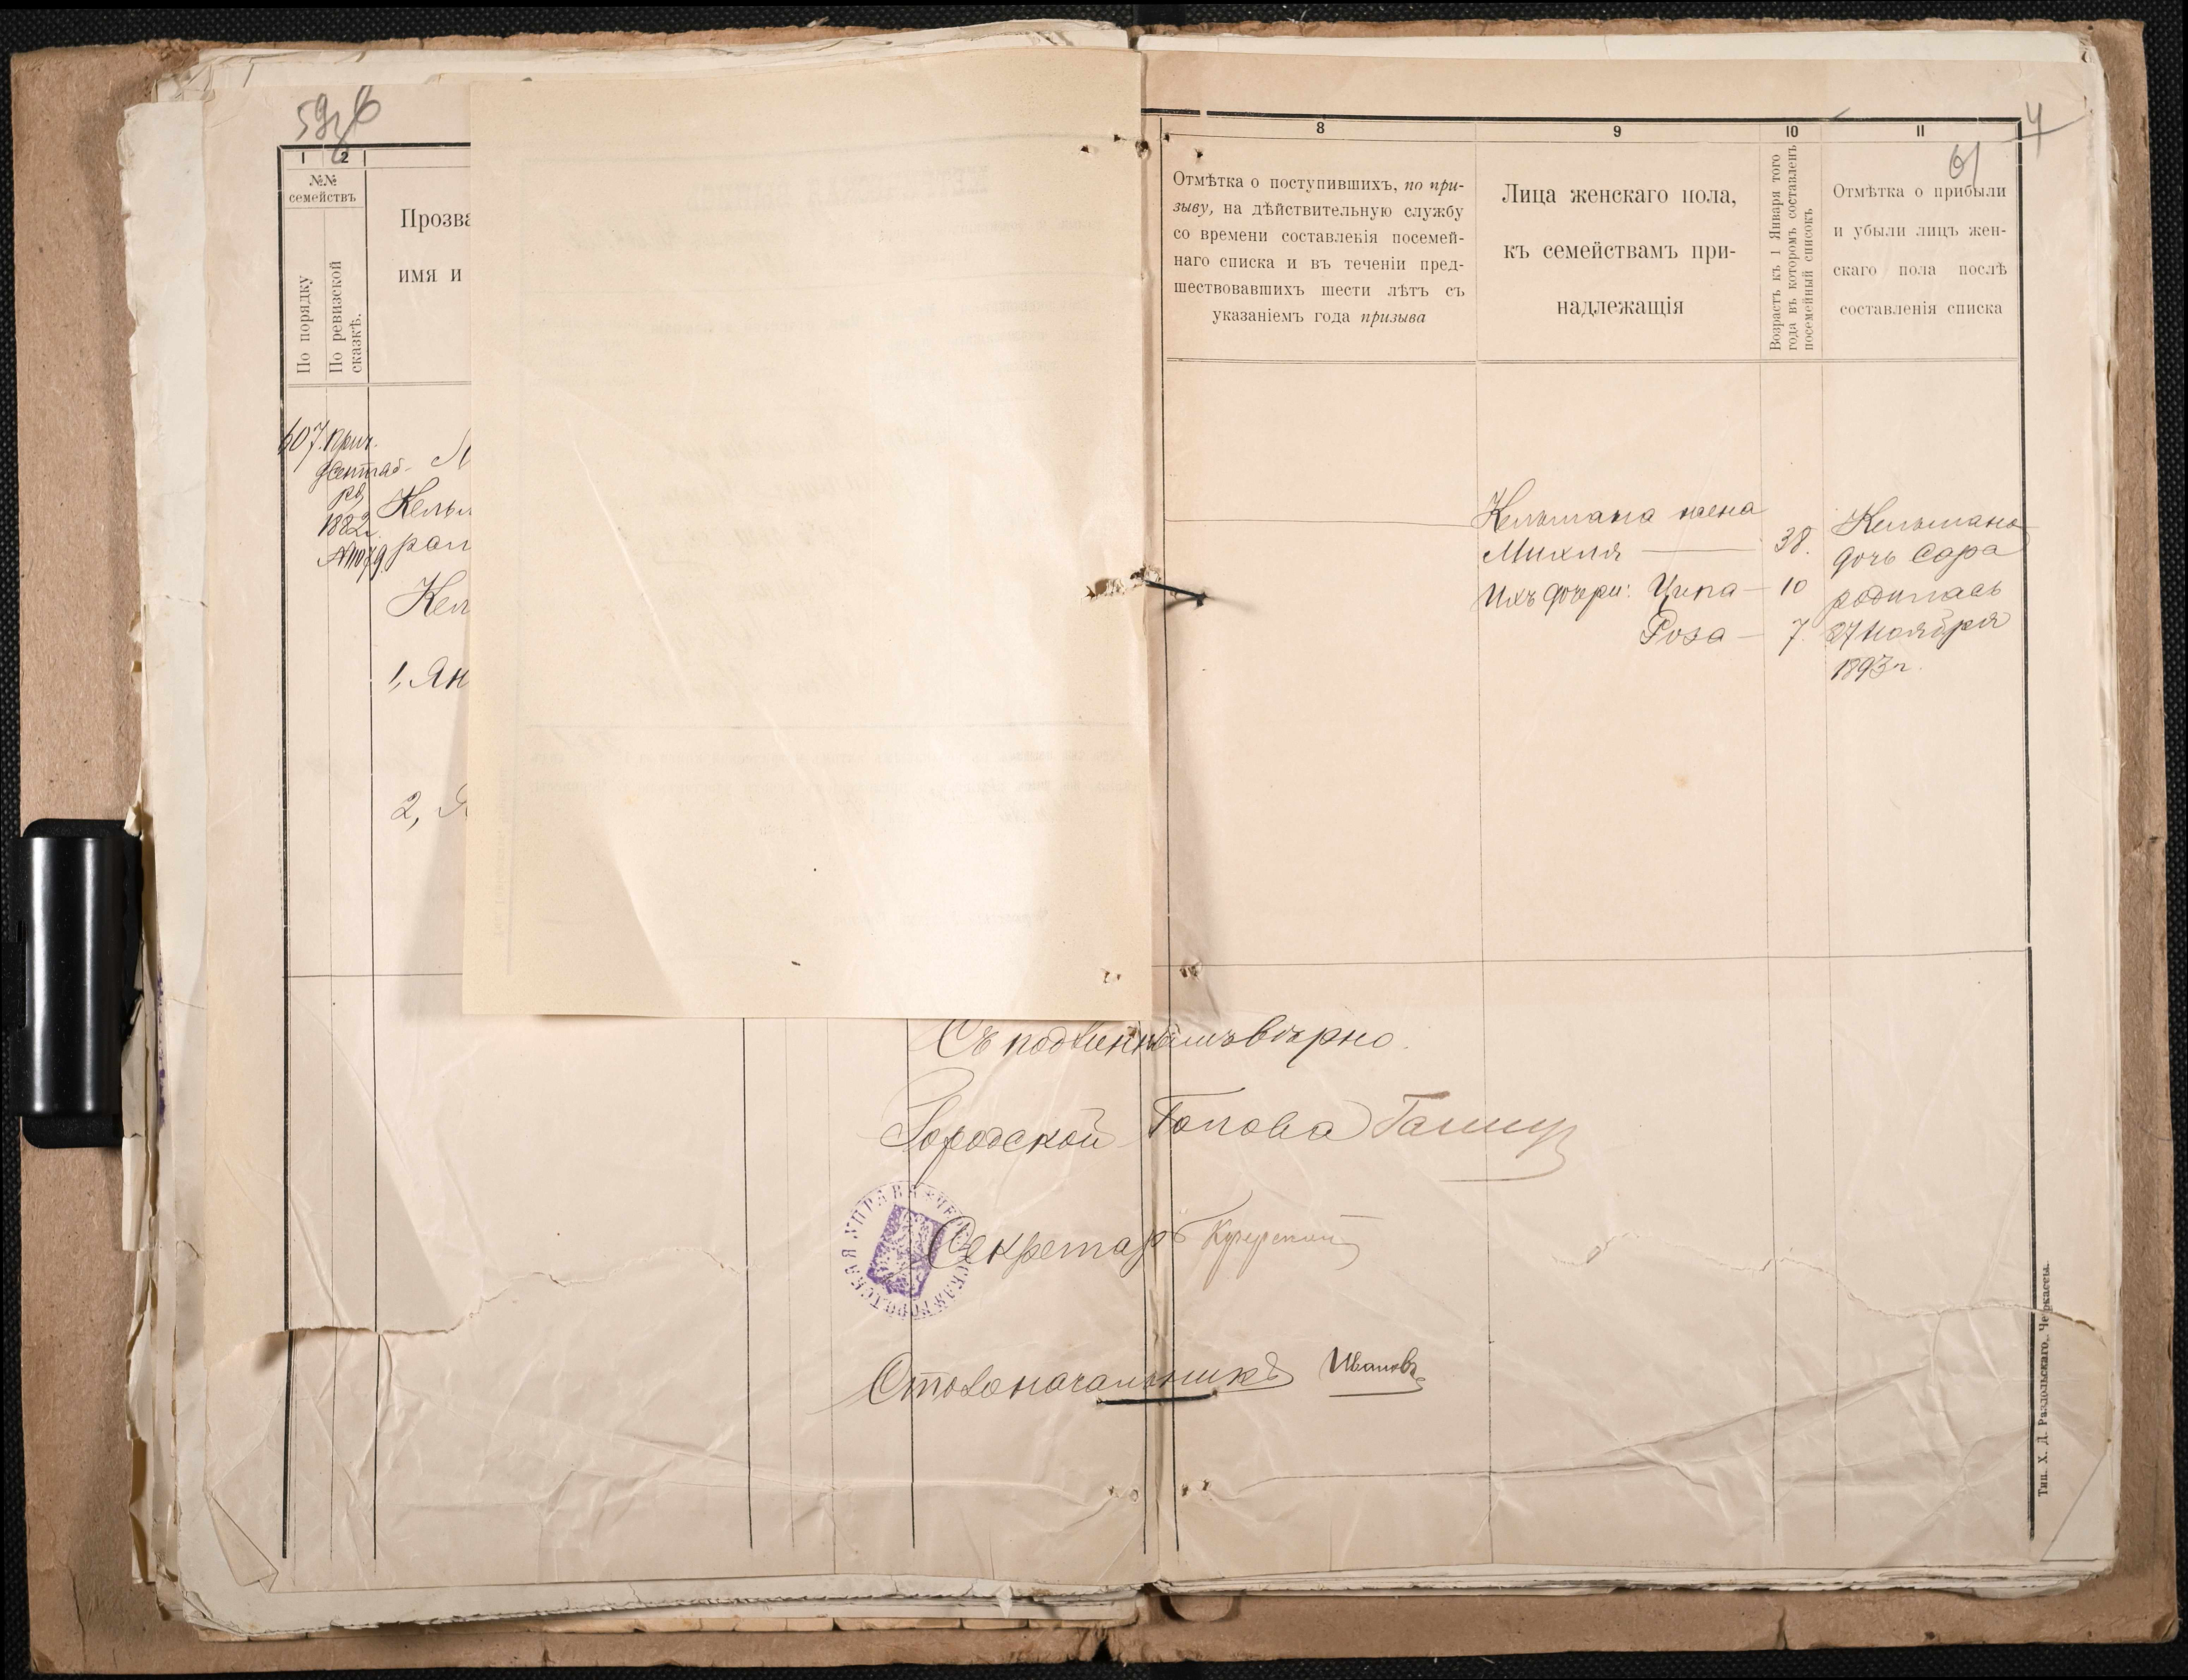 1
2
№№
семействъ
По порядку
По ревизской
сказкѣ.
Прозва
имя и
607.
Прич.
сентяб-
1882г.
Кельм
Кел
1, Ян
2, Я
8
9
10
11
4
61
Отмѣтка о поступившихъ, по при-
зыву, на дѣйствительную службу
со времени составленія посемей-
наго списка и въ теченіи пред-
шествовавшихъ шести лѣтъ съ
указаніемъ года призыва
Лица женскаго пола,
къ семействамъ при-
надлежащія
Возрастъ къ 1 Января того
года въ которомъ составленъ
посемейный списокъ
Отмѣтка о прибыли
и убыли лицъ жен-
скаго пола послѣ
составленія списка
Кельмана жена
Михля — 38.
Ихъ дочери: Ципа — 10
Роза — 7.
Кельмана
дочь Сара
родилась
27 Ноября
1893 г.
Съ подлиннымъ вѣрно.
Городской Голова
Секретарь
Столоначальникъ Ивановъ
УПРАВА
Тип. Х. Д. Раздольскаго, Черкассы.